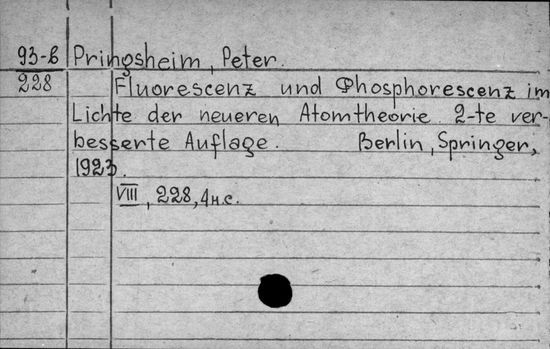 93-б Pringsheim, Peter.
228 Fluorescenz und Phosphorescenz im
Lichte der neueren Atomtheorie. 2-te ver-
besserte Auflage. Berlin, Springer,
1923.
VIII, 228, 4 н.с.